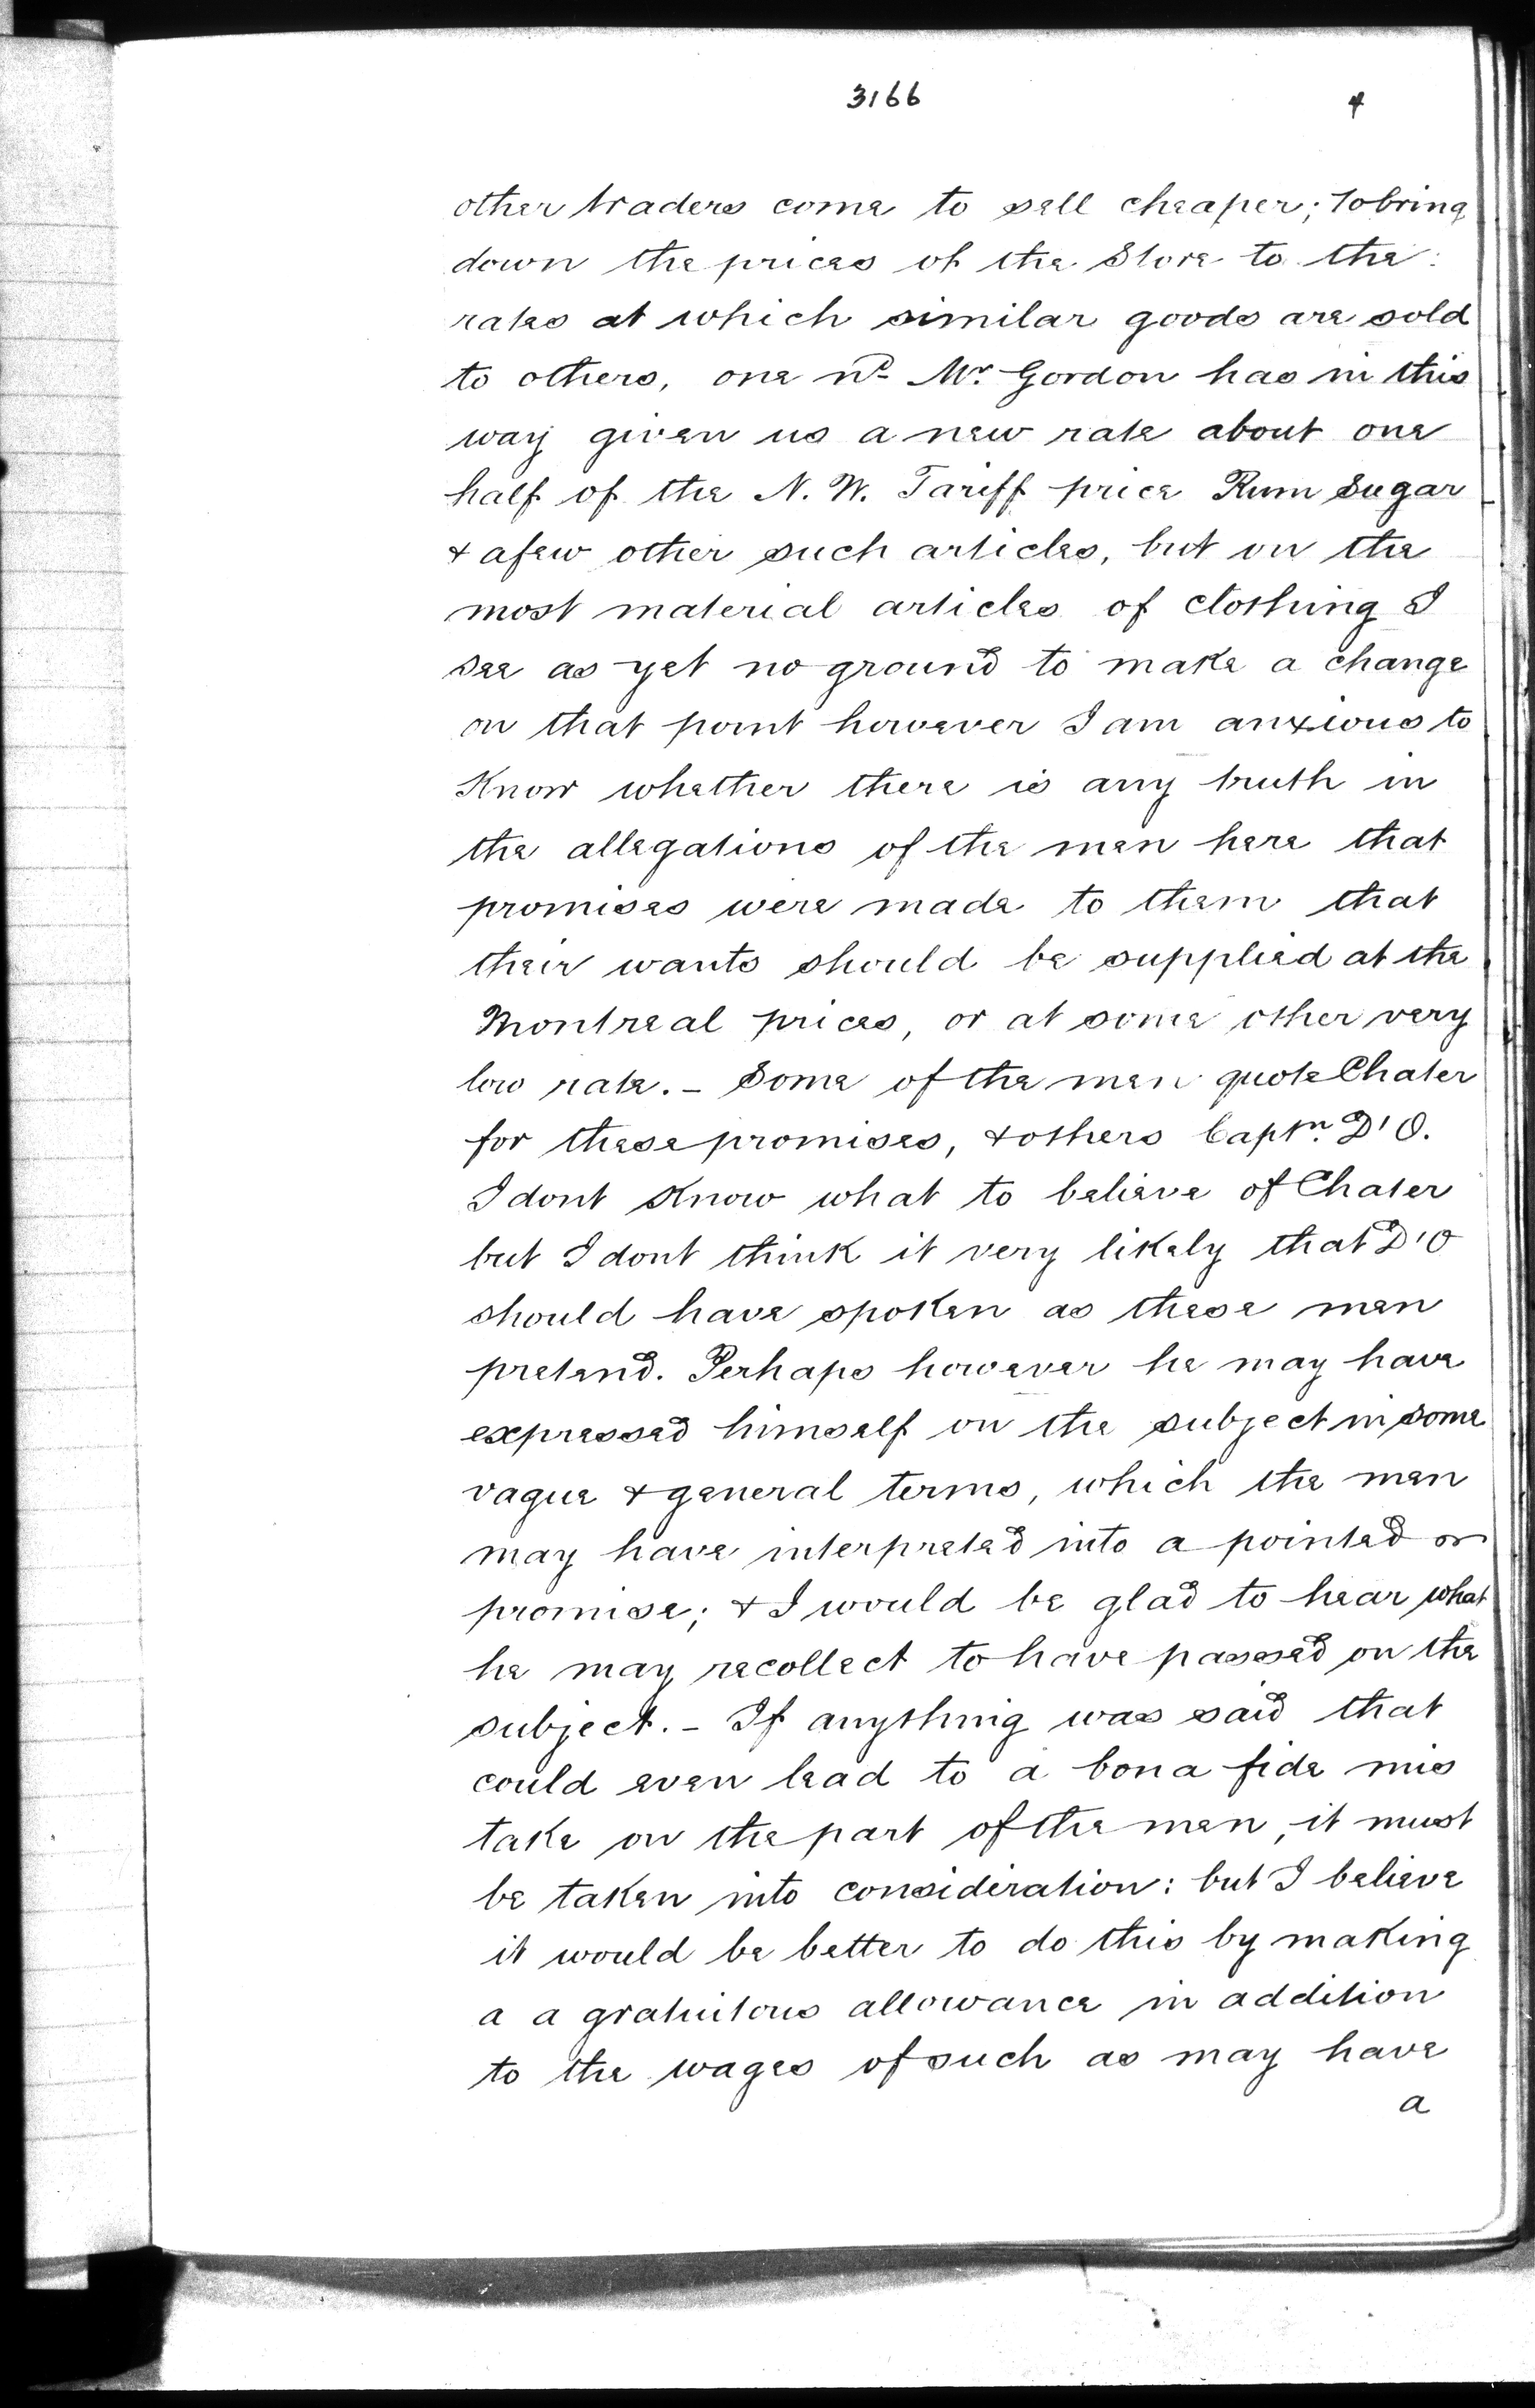 3166 4
other traders come to sell cheaper; to bring
down the prices of the Store to the
rates at which similar goods are sold
to others, one Mr. Gordon has in this
way given us a new rate about one
half of the N. W. Tariff price Rum Sugar
& a few other such articles, but on the
most material articles of clothing I
see as yet no ground to make a change
on that point however I am anxious to
Know whether there is any truth in
the allegations of the men here that
promises were made to them that
their wants should be supplied at the
Montreal prices, or at some other very
low rate. – Some of the men quote Chater
for these promises, & others Captn. D'O.
I dont Know what to believe of Chater
but I dont think it very likely that D'O
should have spoken as these men
pretend. Perhaps however he may have
expressed himself on the subject in some
vague & general terms, which the men
may have interpreted into a pointed or
promise; & I would be glad to hear what
he may recollect to have passed on the
subject. – If anything was said that
could even lead to a bona fide mis
take on the part of the men, it must
be taken into consideration: but I believe
it would be better to do this by making
a a gratuitous allowance in addition
to the wages of such as may have
a